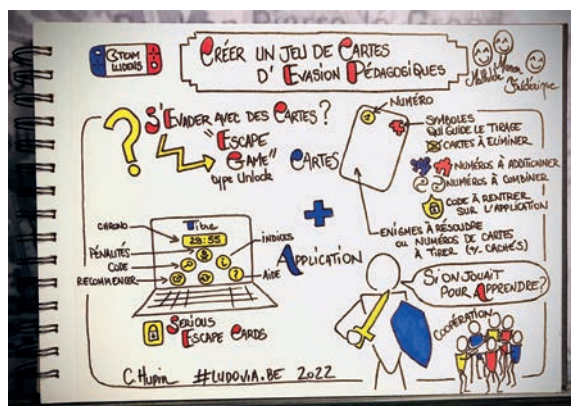 STEAM
LUDENS
CRÉER UN JEU DE CARTES
D'EVASION PÉDAGOGIQUES
Mathilde
Manon
Frédérique
?
S'EVADER AVEC DES CARTES ?
"ESCAPE
GAME"
type Unlock
CARTES
NUMÉRO
SYMBOLES
QUI GUIDE LE TIRAGE
CARTES À ÉLIMINER
NUMÉROS À ADDITIONNER
NUMÉROS À COMBINER
CODE À RENTRER
SUR L'APPLICATION
ENIGMES À RÉSOUDRE
OU NUMÉROS DE CARTES
À TIRER (+/- CACHÉS)
+
Titre
CHRONO
29:55
PÉNALITÉS
CODE
RECOMMENCER
INDICES
AIDE
APPLICATION
SERIOUS
ESCAPE CARDS
SI ON JOUAIT
POUR APPRENDRE ?
COOPÉRATION
C. Hupin #LUDOVIA.BE 2022